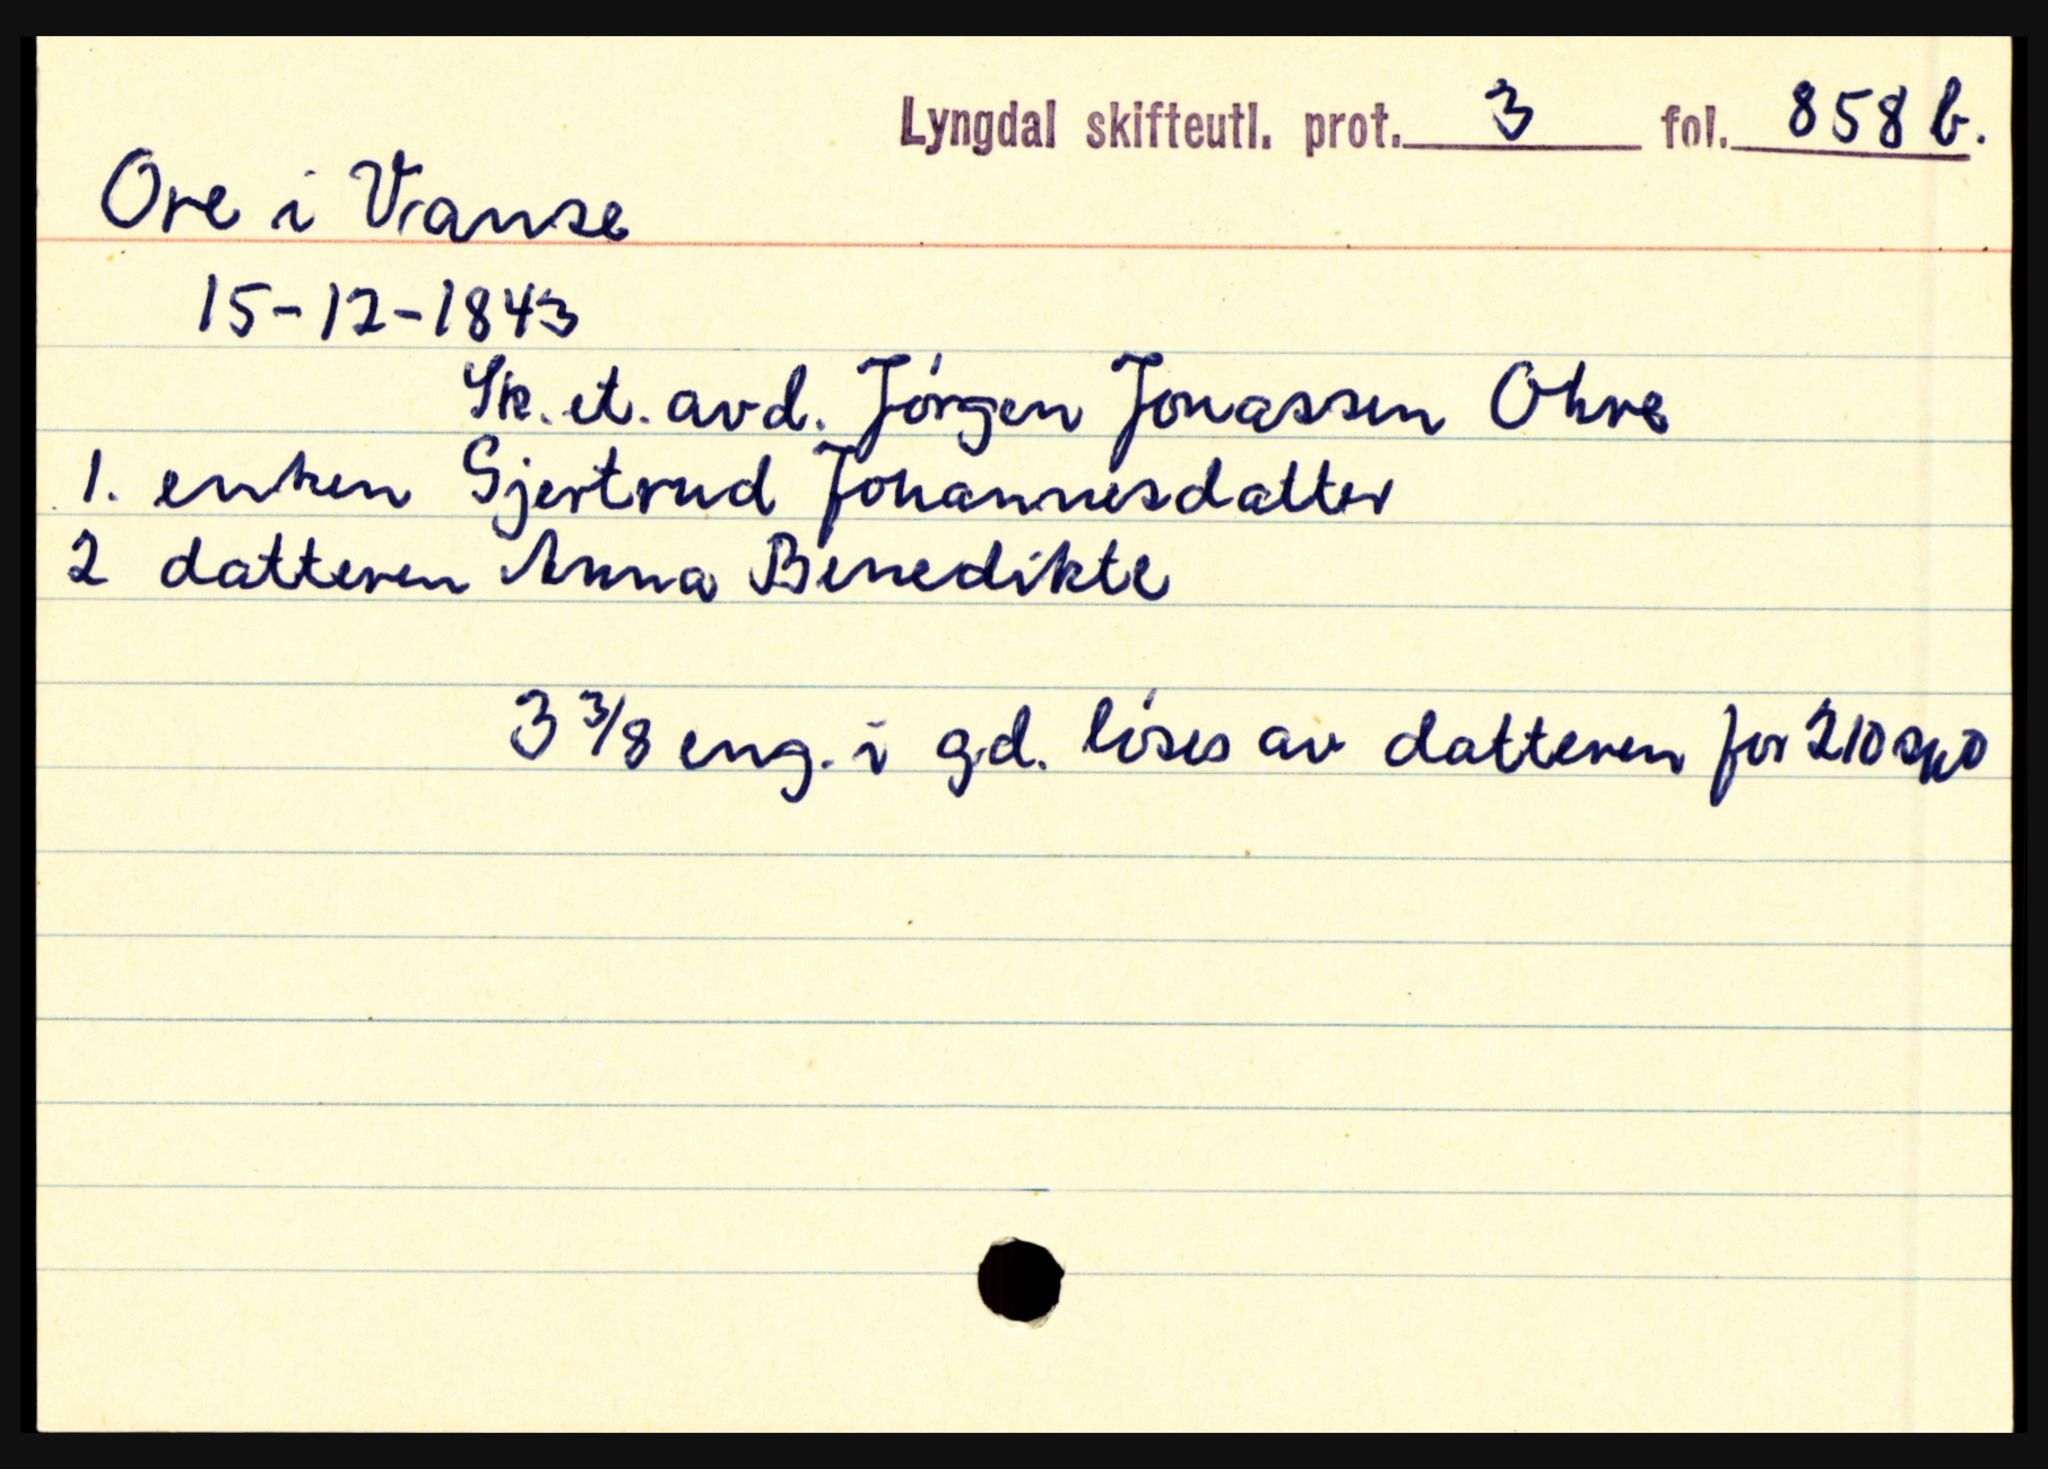 Lyngdal skifteutl. prot. 3 fol. 858 b.
Ore i Vanse
15-12-1843
Sk. et. avd. Jórgen Jonassen Ohre
1. enken Gjertrud Johannesdatter
2 datteren Anna Benedikte
3 3/8 eng. i gd. lóses av datteren for 210 spd